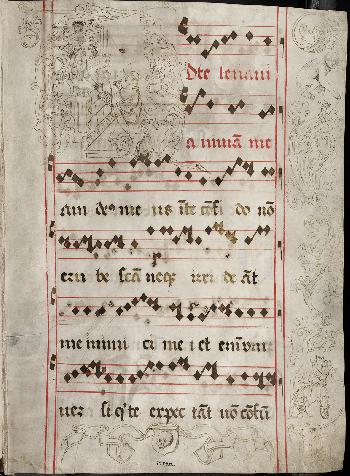 Dte leuaui
animā me
am deꝰ meus ī te cōfi do nō
eru be scā neqꝫ irri de āt
me inimi ci me i et
si qͥ te expec tāt nō cōfū